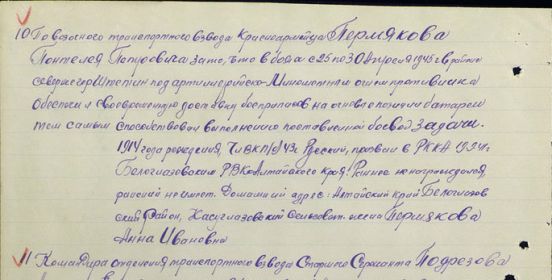 10) Повозочного транспортного взвода Красноармейца Пермякова
Пантелея Петровича за то, что в боях с 25 по 30 апреля 1945 г в районе
северней гор Штетин под артиллерийско-минометным огнем противника
обеспечил своевременную доставку боеприпасов на огневые позиции батареи
тем самым способствовал выполнению поставленной боевой задачи.
1914 года рождения, Чл ВКП(б) 43г. Русский, призван в РККА 1934г
Белоглазовским РВК Алтайского края. Раннее не награждался,
ранений не имеет. Домашний адрес: Алтайский край Белоглазов
ский район, сельсовет. имени Пермякова
Анна Ивановна
11 Командира отделения транспортного взвода Старшего Сержанта Подрезова